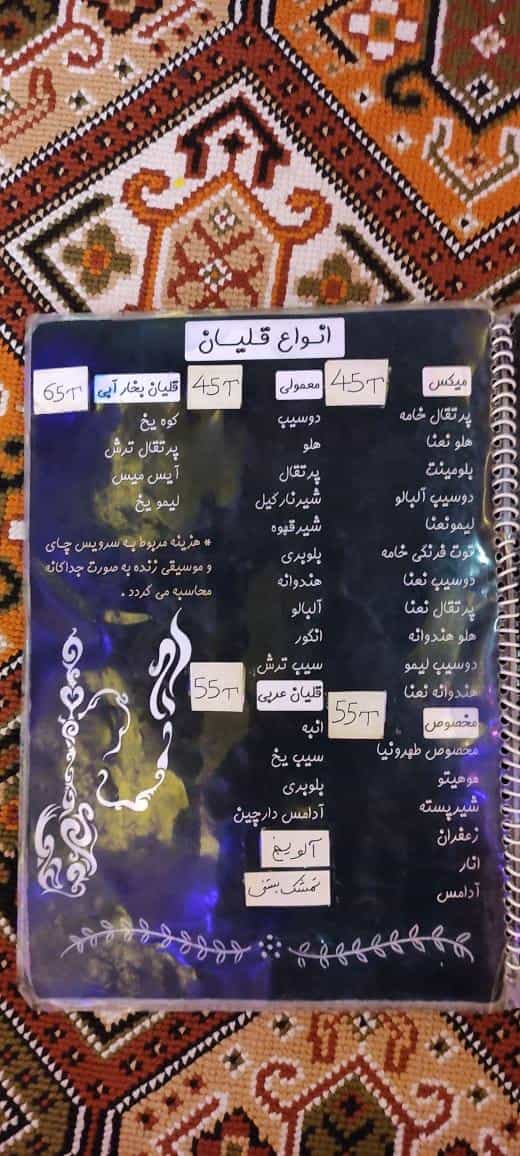 انواع قلیان
میکس
45T
پرتقال خامه
هلو نعنا
بلومینت
دوسیب آلبالو
لیمونعنا
توت فرنگی خامه
دوسیب نعنا
پرتقال نعنا
هلو هندوانه
دوسیب لیمو
هندوانه نعنا
مخصوص
55T
مخصوص طهرونیا
موهیتو
شیرپسته
زعفران
انار
آدامس
معمولی
45T
دوسیب
هلو
پرتقال
شیرنارگیل
شیرقهوه
بلوبری
هندوانه
آلبالو
انگور
سیب ترش
قلیان عربی
55T
انبه
سیب یخ
بلوبری
آدامس دارچین
آلو یخ
تمشک بستنی
قلیان بخار آبی
65T
کوه یخ
پرتقال ترش
آیس میس
لیمو یخ
* هزینه مربوط به سرویس چای
و موسیقی زنده به صورت جداگانه
محاسبه می گردد .